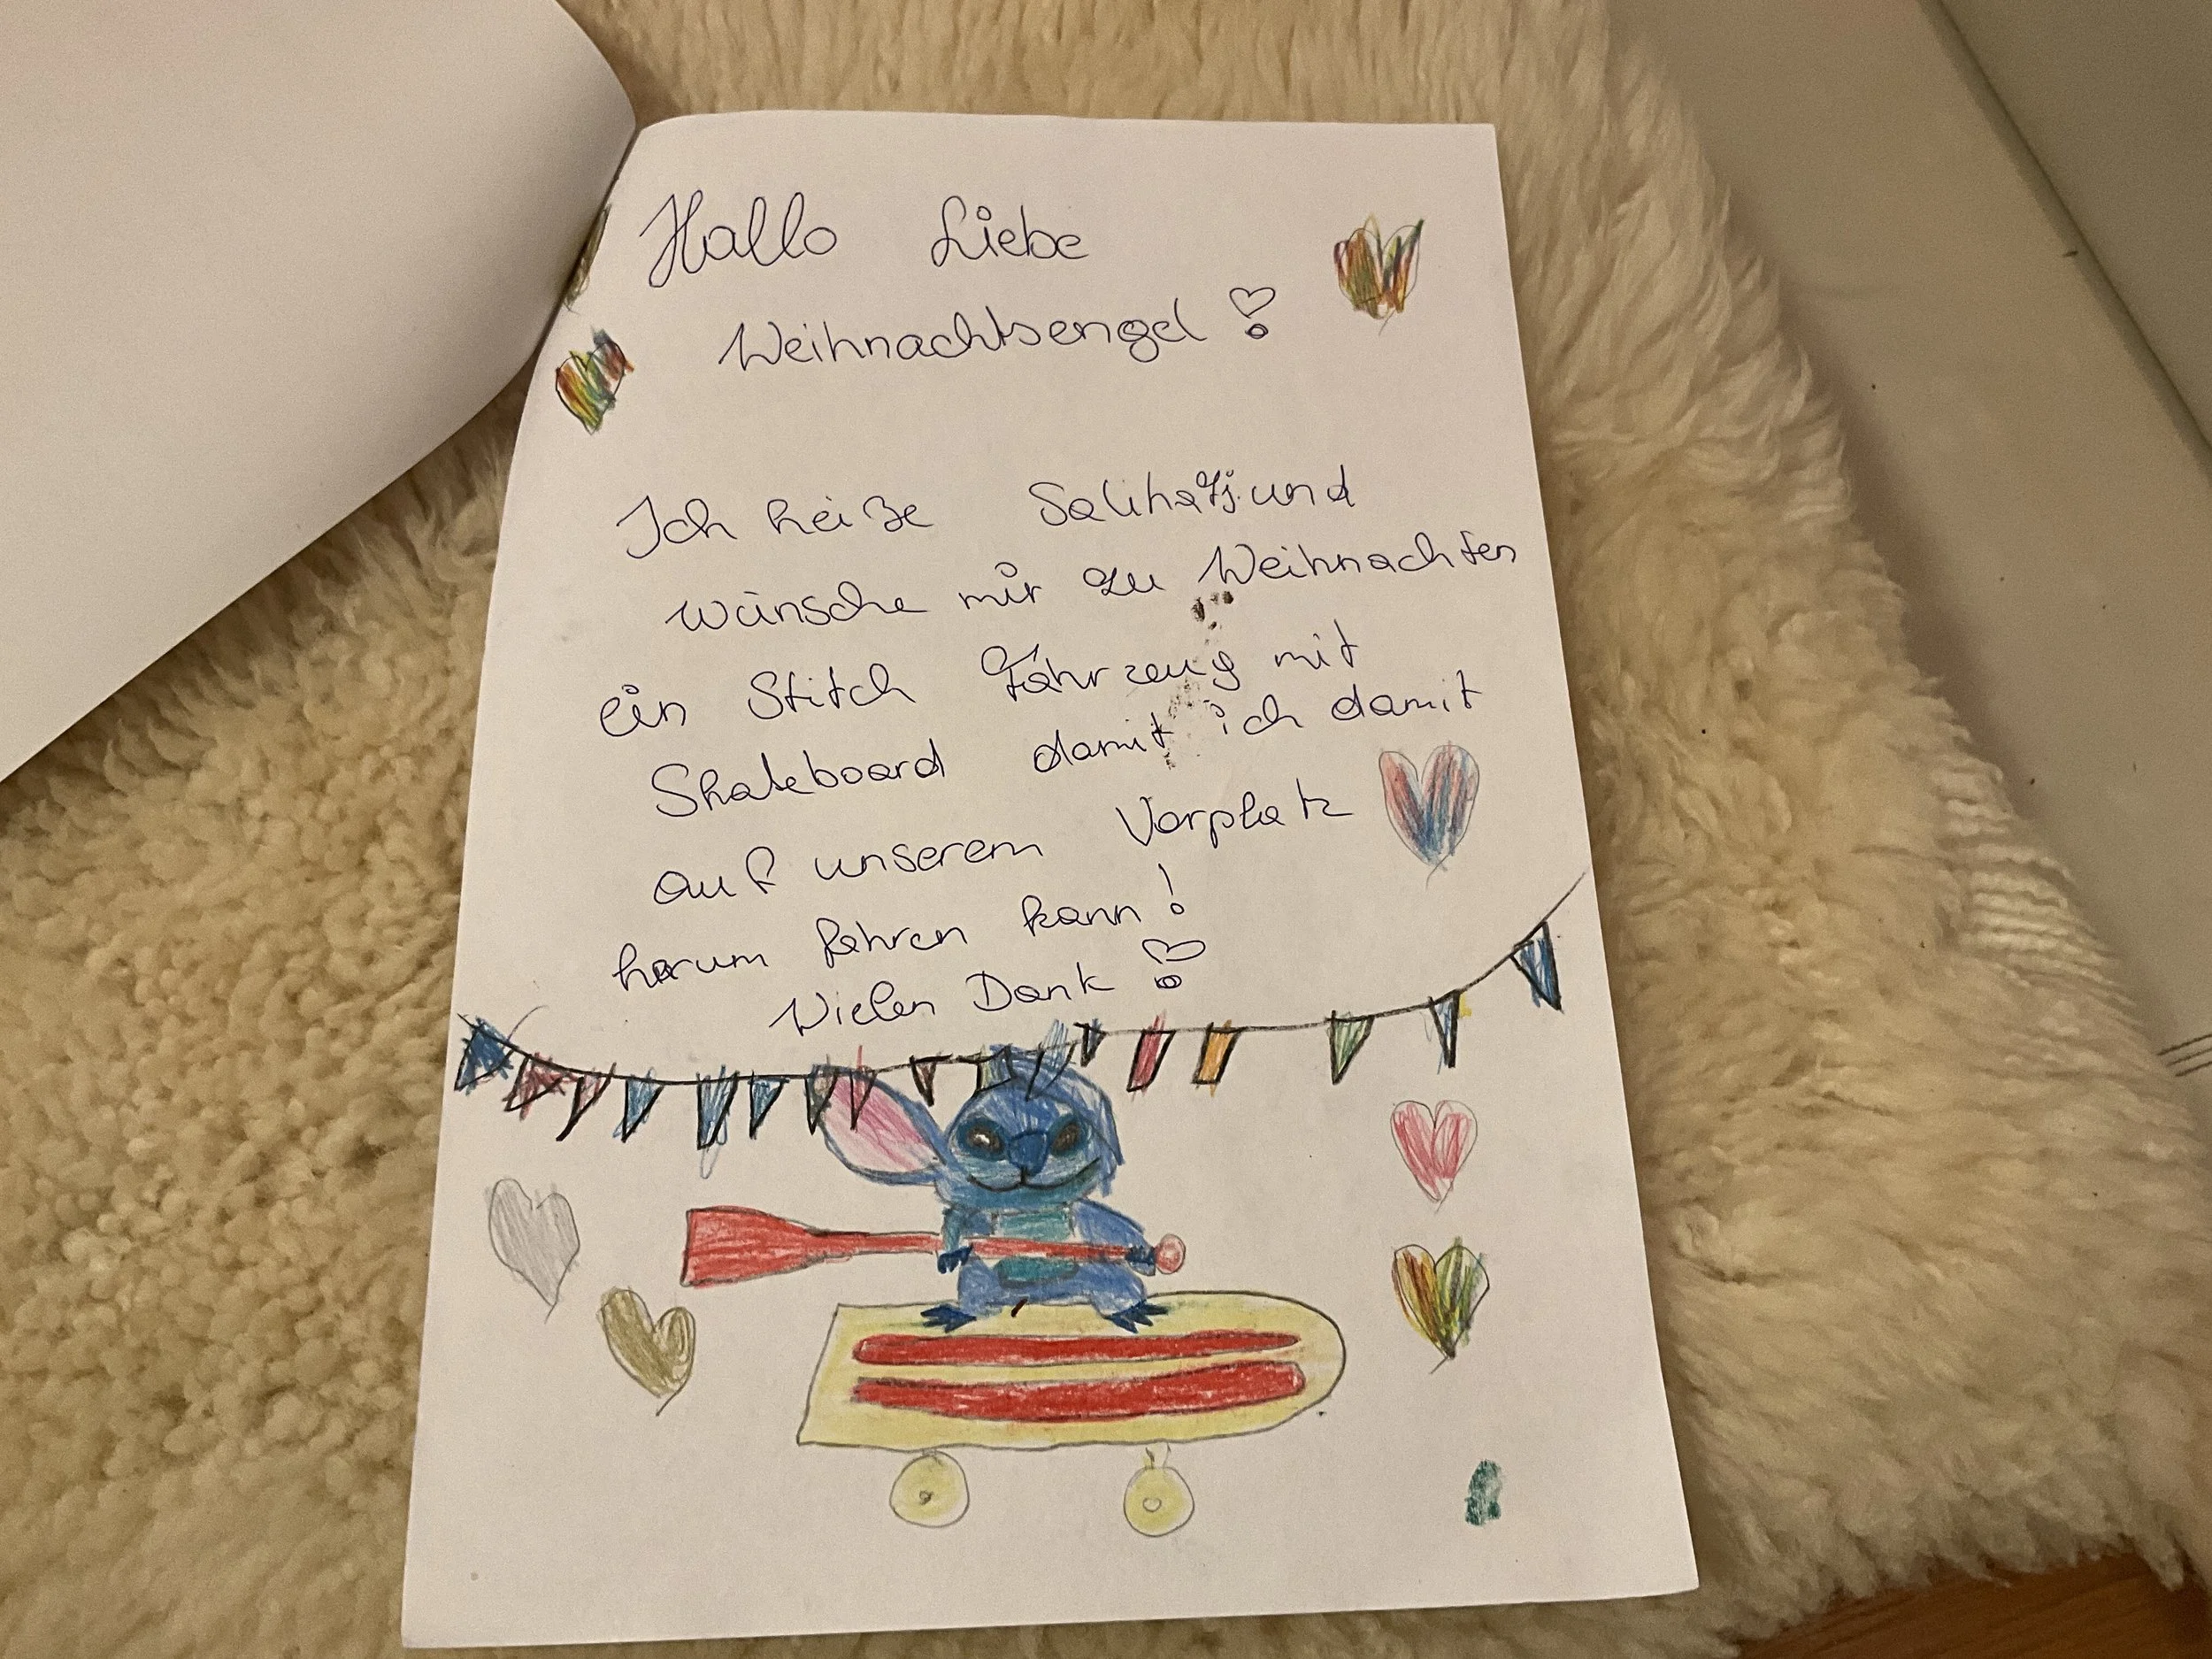 Hallo Liebe
Weihnachtsengel
Ich heiße und
wünsche mir zu Weihnachten
ein Stitch Fahrzeug mit
Skateboard damit ich damit
auf unserem Vorplatz
herum fahren kann!
Vielen Dank